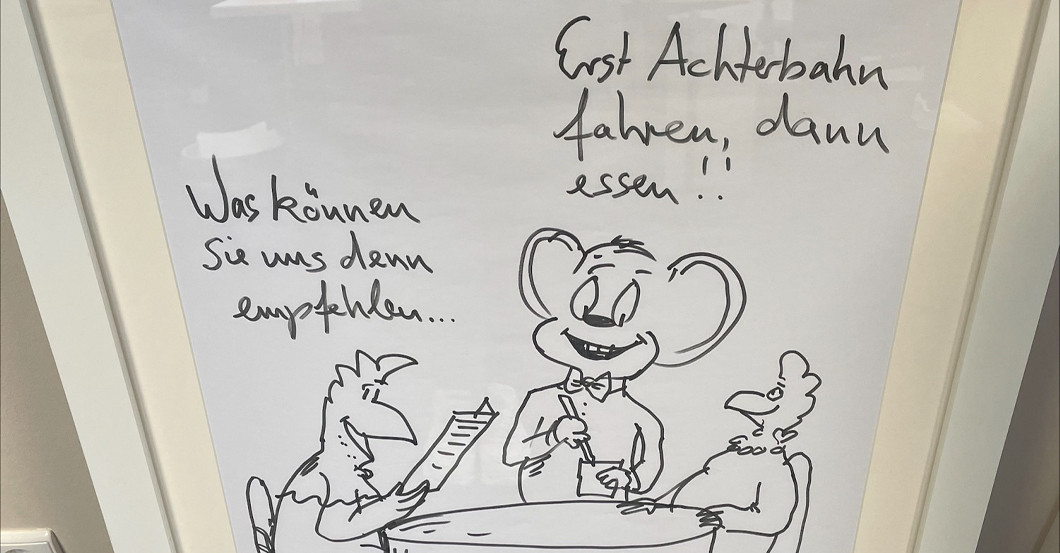 Erst Achterbahn
fahren, dann
essen!!
Was können
Sie uns denn
empfehlen...